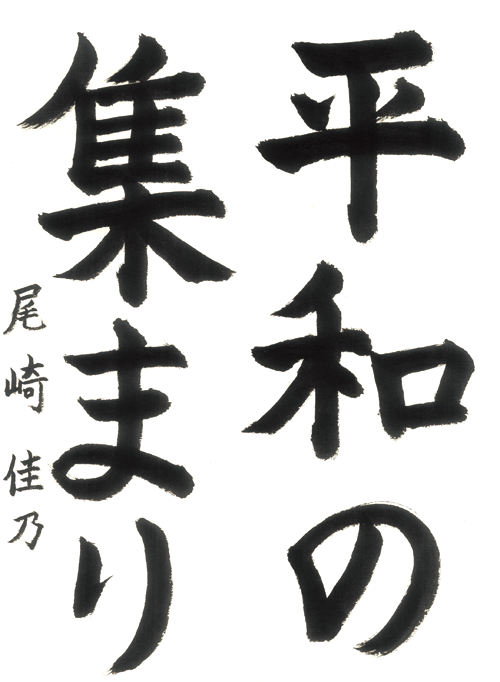 平和の
集まり
尾崎 佳乃